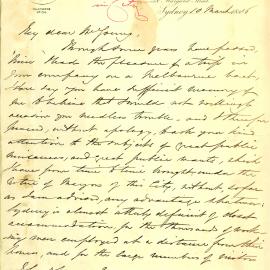 Sydney 10 March 1886
My dear Mr Young,
Though some years have passed
since I had the pleasure of a trip in
your company on a Melbourne boat,
I dare say you have sufficient memory of
me to believe that I would not willingly
occasion you needless trouble and I therefore
proceed, without apology, to ask your kind
attention to the subjects of great public
nuisances, and great public wants, which
have from time to time brought under the
notice of Mayors of this City, without, so far
as I am advised, any advantage whatever;
Sydney is almost utterly deficient of closet
accommodation for the thousands of work-
ing men employed at a distance from their
homes, and for the large number of visitors